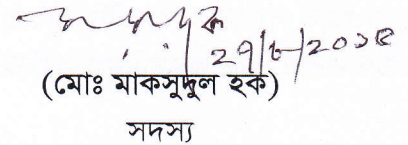 ২৭/৮/২০১৫
(মোঃ মাকসুদুল হক)
সদস্য